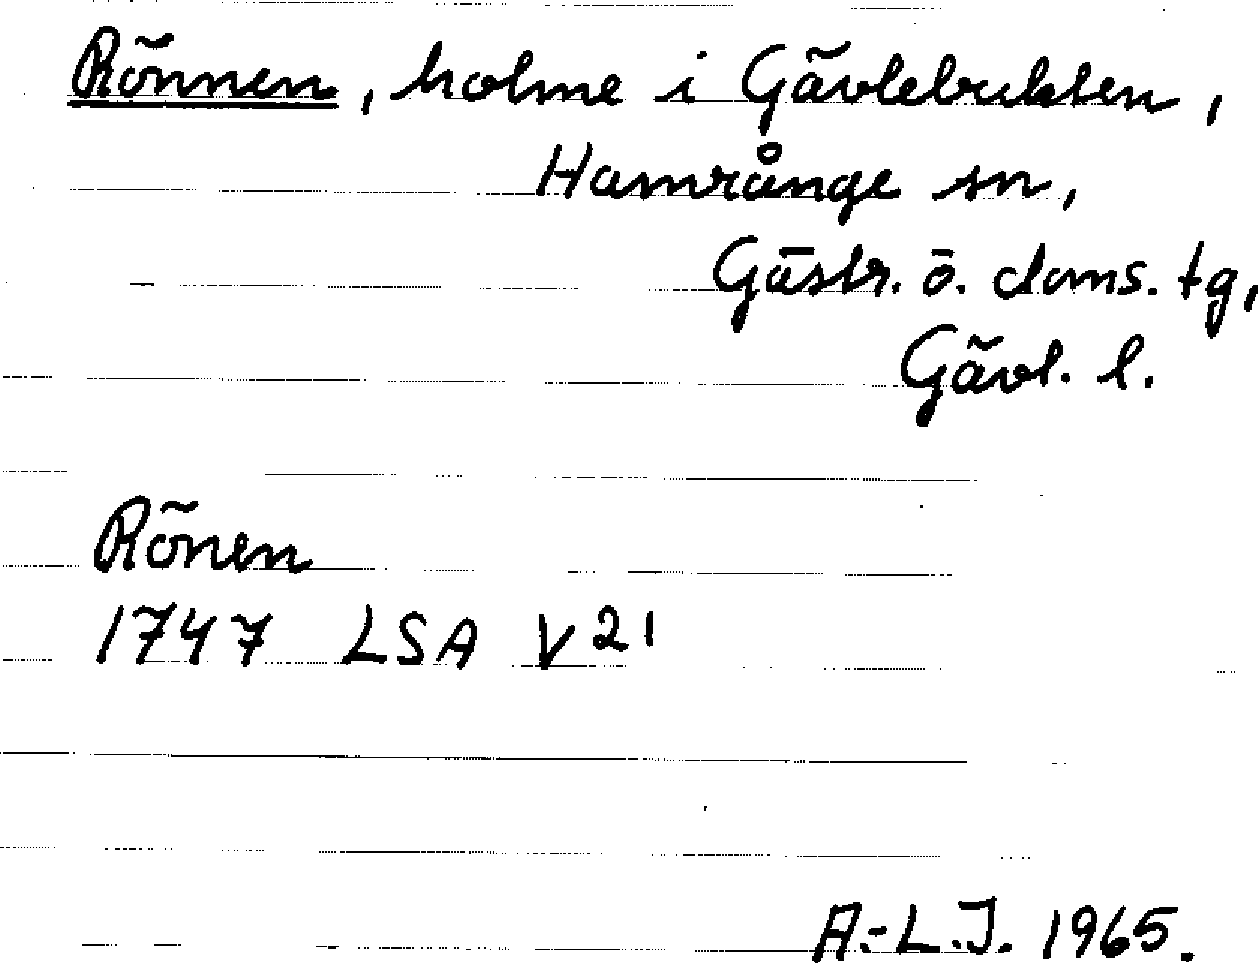 Rönnen, holme i Gävlebukten,
Hamrånge sn,
Gästr. ö. doms. tg,
Gävl. l.
Rönen
1747 LSA V 21
A.-L.J. 1965.